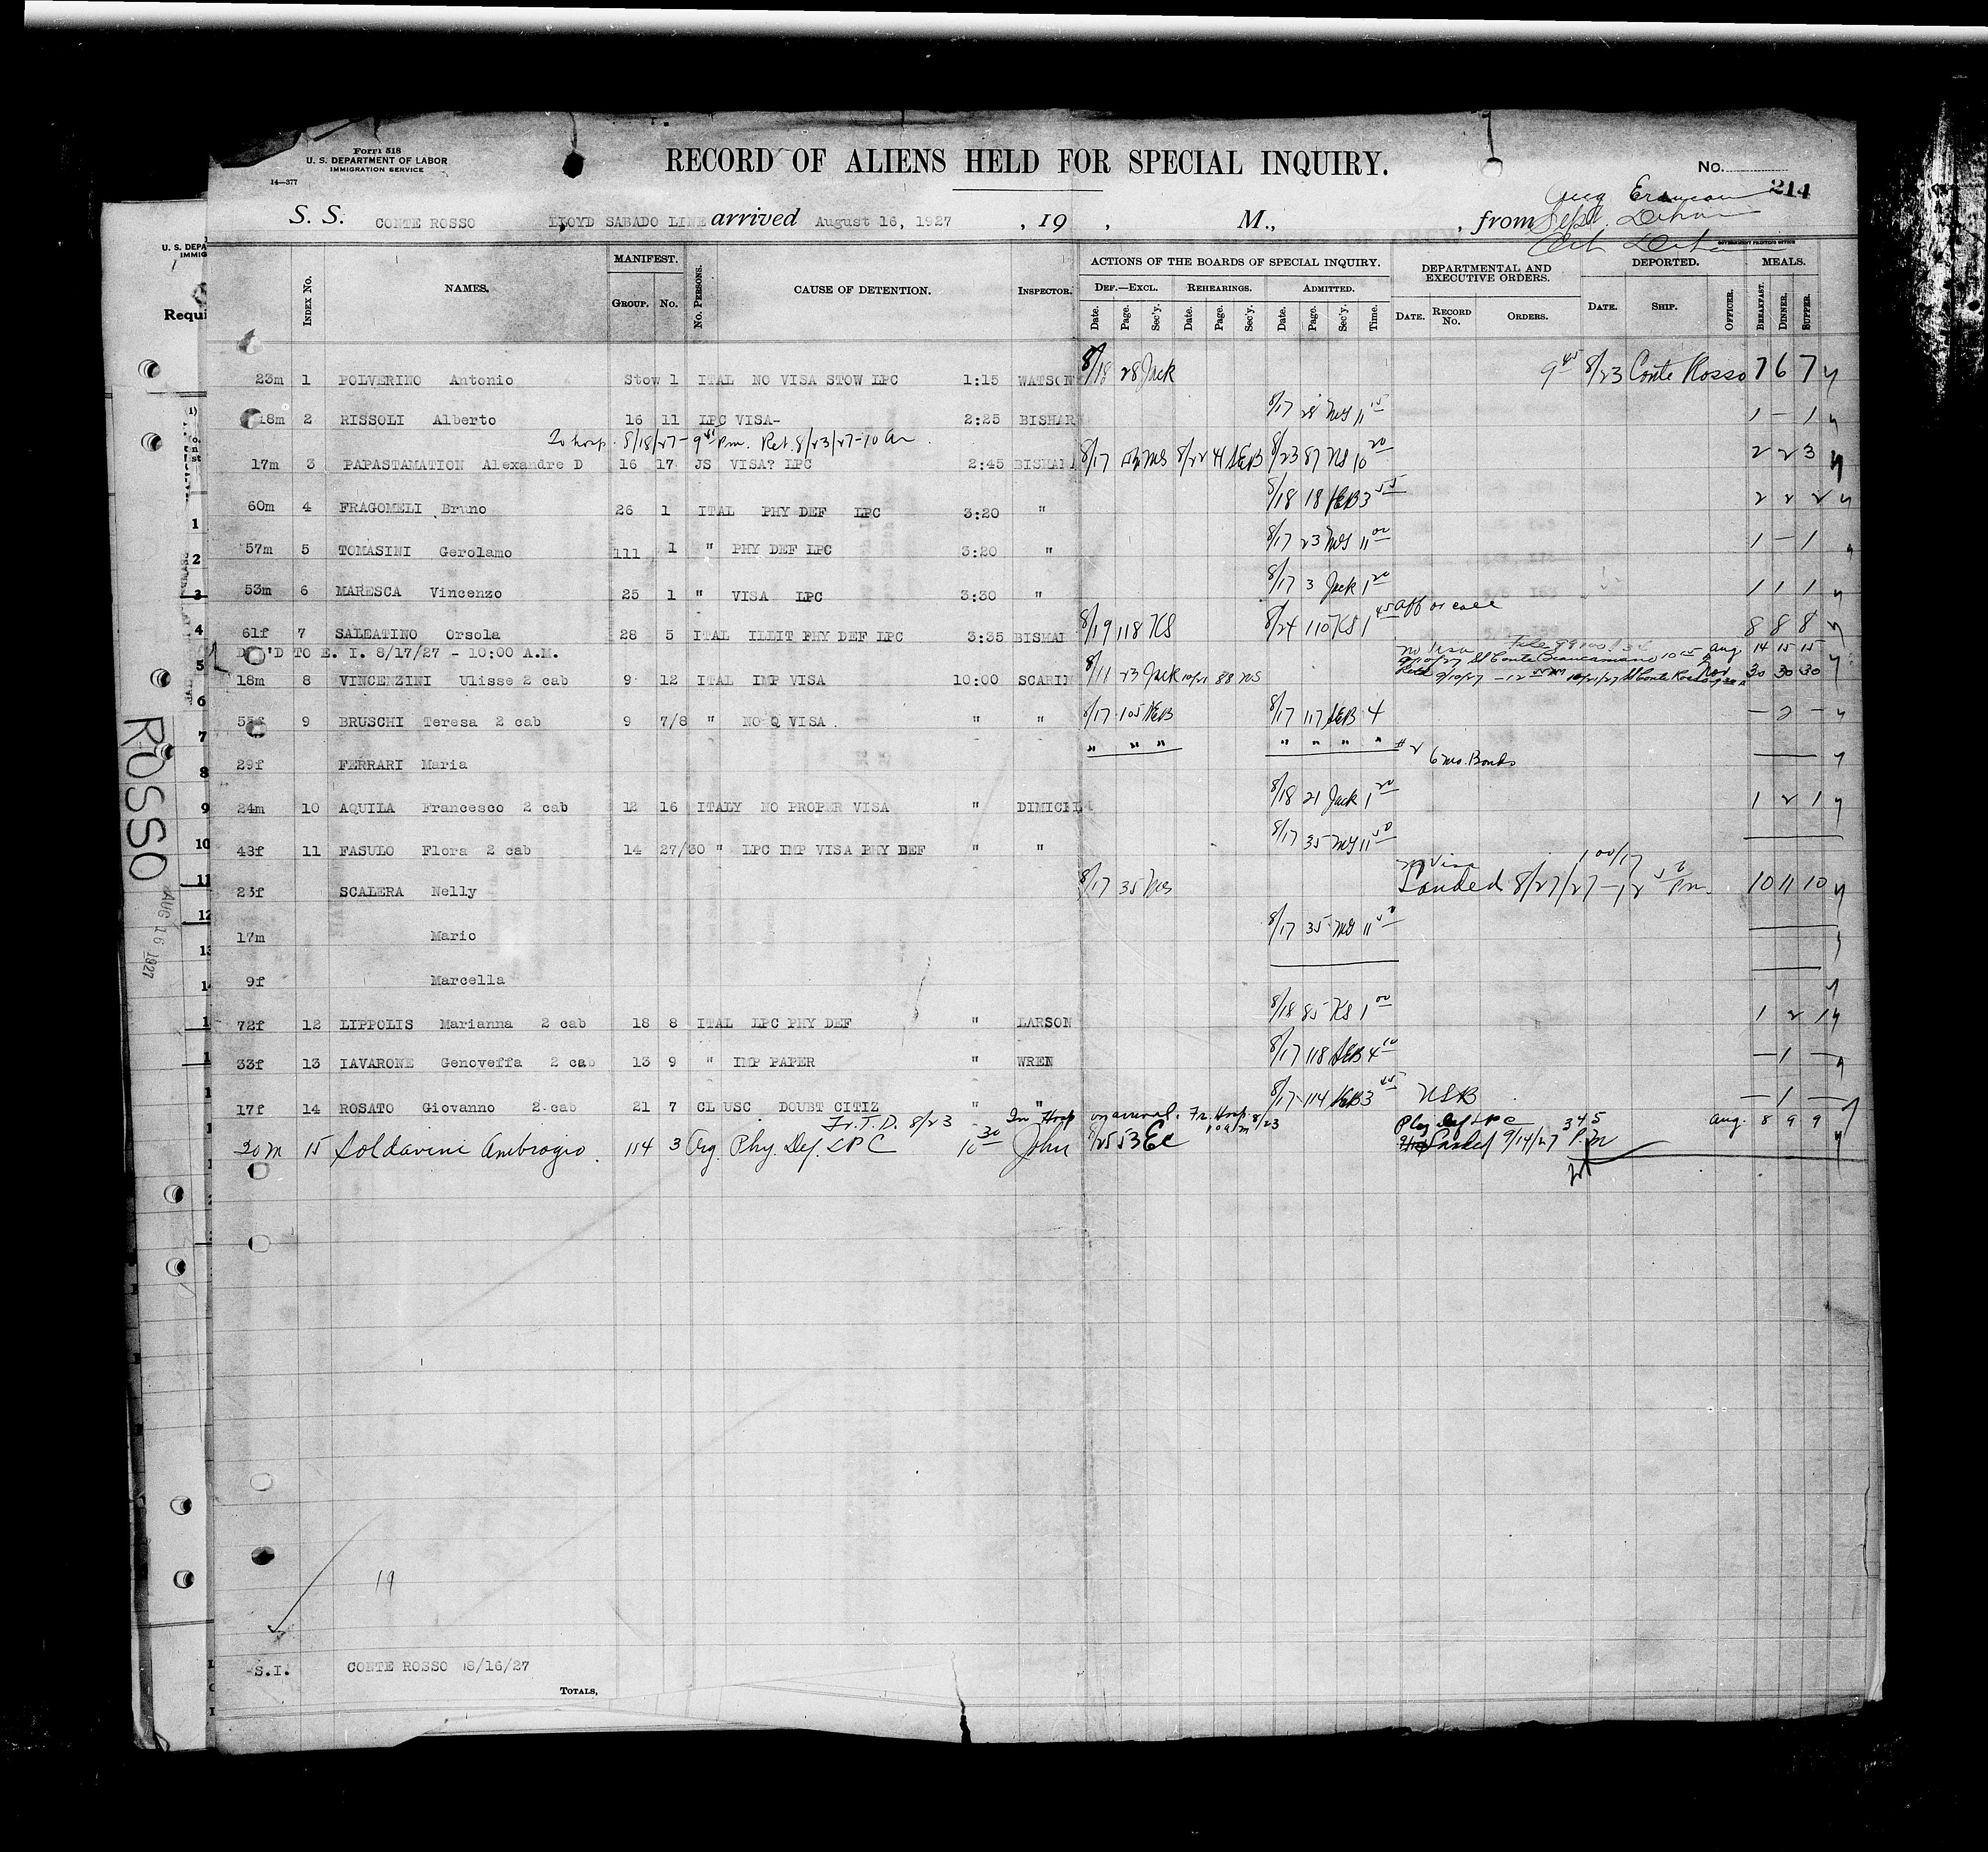 Form 518
U. S. DEPARTMENT OF LABOR
IMMIGRATION SERVICE
14—377
RECORD OF ALIENS HELD FOR SPECIAL INQUIRY.
No.
214
S. S. CONTE ROSSO LLOYD SABADO LINE arrived August 16, 1927 , 19 , M., , from
GOVERNMENT PRINTING OFFICE
INDEX No. NAMES. MANIFEST. GROUP. No. No. PERSONS. CAUSE OF DETENTION. INSPECTOR.
ACTIONS OF THE BOARDS OF SPECIAL INQUIRY. DEPARTMENTAL AND EXECUTIVE ORDERS. DEPORTED. MEALS.
DEF.—EXCL. REHEARINGS. ADMITTED.
Date. Page. Sec'y. Date. Page. Sec'y. Date. Page. Sec'y. Time. DATE. RECORD No. ORDERS. DATE. SHIP. OFFICER. BREAKFAST. DINNER. SUPPER.
23m 1 POLVERINO Antonio Stow 1 ITAL NO VISA STOW LPC 1:15 WATSON 8/18 28 Jack 9 45 8/23 Conte Rosso 7 6 7
18m 2 RISSOLI Alberto 16 11 LPC VISA- 2:25 BISHAR 8/17 28 MS 11 15 1 — 1
To hosp. 8/18/27 - 9 41 Pm. Ret. 8/23/27-10 Am
17m 3 PAPASTAMATION Alexandre D 16 17 JS VISA? LPC 2:45 BISHAR 8/17 MS 8/22 4 SEB 8/23 87 NS 10 20 2 2 3
60m 4 FRAGOMELI Bruno 26 1 ITAL PHY DEF LPC 3:20 " 8/18 18 KEB 3 55 2 2 2
57m 5 TOMASINI Gerolamo 111 1 " PHY DEF LPC 3:20 " 8/17 23 MS 11 00 1 — 1
53m 6 MARESCA Vincenzo 25 1 " VISA LPC 3:30 " 8/17 3 Jack 1 20 1 1 1
61f 7 SALEATINO Orsola 28 5 ITAL ILLIT PHY DEF LPC 3:35 BISHAR 8/19 118 KS 8/24 110 KS 1 45 8 8 8
D 'D TO E. I. 8/17/27 - 10:00 A.M.
No Visa Aug 14 15 15
18m 8 VINCENZINI Ulisse 2 cab 9 12 ITAL IMP VISA 10:00 SCARIN 8/11 23 Jack 10/21 88 NS 30 30 30
55f 9 BRUSCHI Teresa 2 cab 9 7/8 " NO Q VISA " " 8/17 105 KEB 8/17 117 SEB 4 — 2 —
29f FERRARI Maria " " " " " " " 6 mo. Bonds
24m 10 AQUILA Francesco 2 cab 12 16 ITALY NO PROPER VISA " DIMICELI 8/18 21 Jack 1 20 1 2 1
48f 11 FASULO Flora 2 cab 14 27/30 " LPC IMP VISA PHY DEF " " 8/17 35 MS 11 50
23f SCALERA Nelly 8/17 35 MS No Visa Landed 8/27/27 - 12 50 Pm. 10 11 10
17m Mario 8/17 35 MS 11 50
9f Marcella
72f 12 LIPPOLIS Marianna 2 cab 18 8 ITAL LPC PHY DEF " LARSON 8/18 85 KS 1 00 1 2 1
33f 13 IAVARONE Genoveffa 2 cab 13 9 " IMP PAPER " WREN 8/17 118 SEB 4 10 — 1 —
17f 14 ROSATO Giovanno 2 cab 21 7 CL USC DOUBT CITIZ " " 8/17 114 KEB 3 45 USB — 1 —
Fr. T. D. 8/23 In Hosp on arrival. Fr. Hosp. 8/23 10 a/m Phy Def LPC 3 45 Aug. 8 9 9
20m 15 Soldavini Ambrogio 114 3 Arg. Phy. Def. LPC 10 30 John 8/25 53 EC Landed 9/14/27 P.M
19
S.I. CONTE ROSSO 8/16/27
TOTALS,
U. S. DEPA
IMMIG
Requi
ROSSO
AUG 16 1927